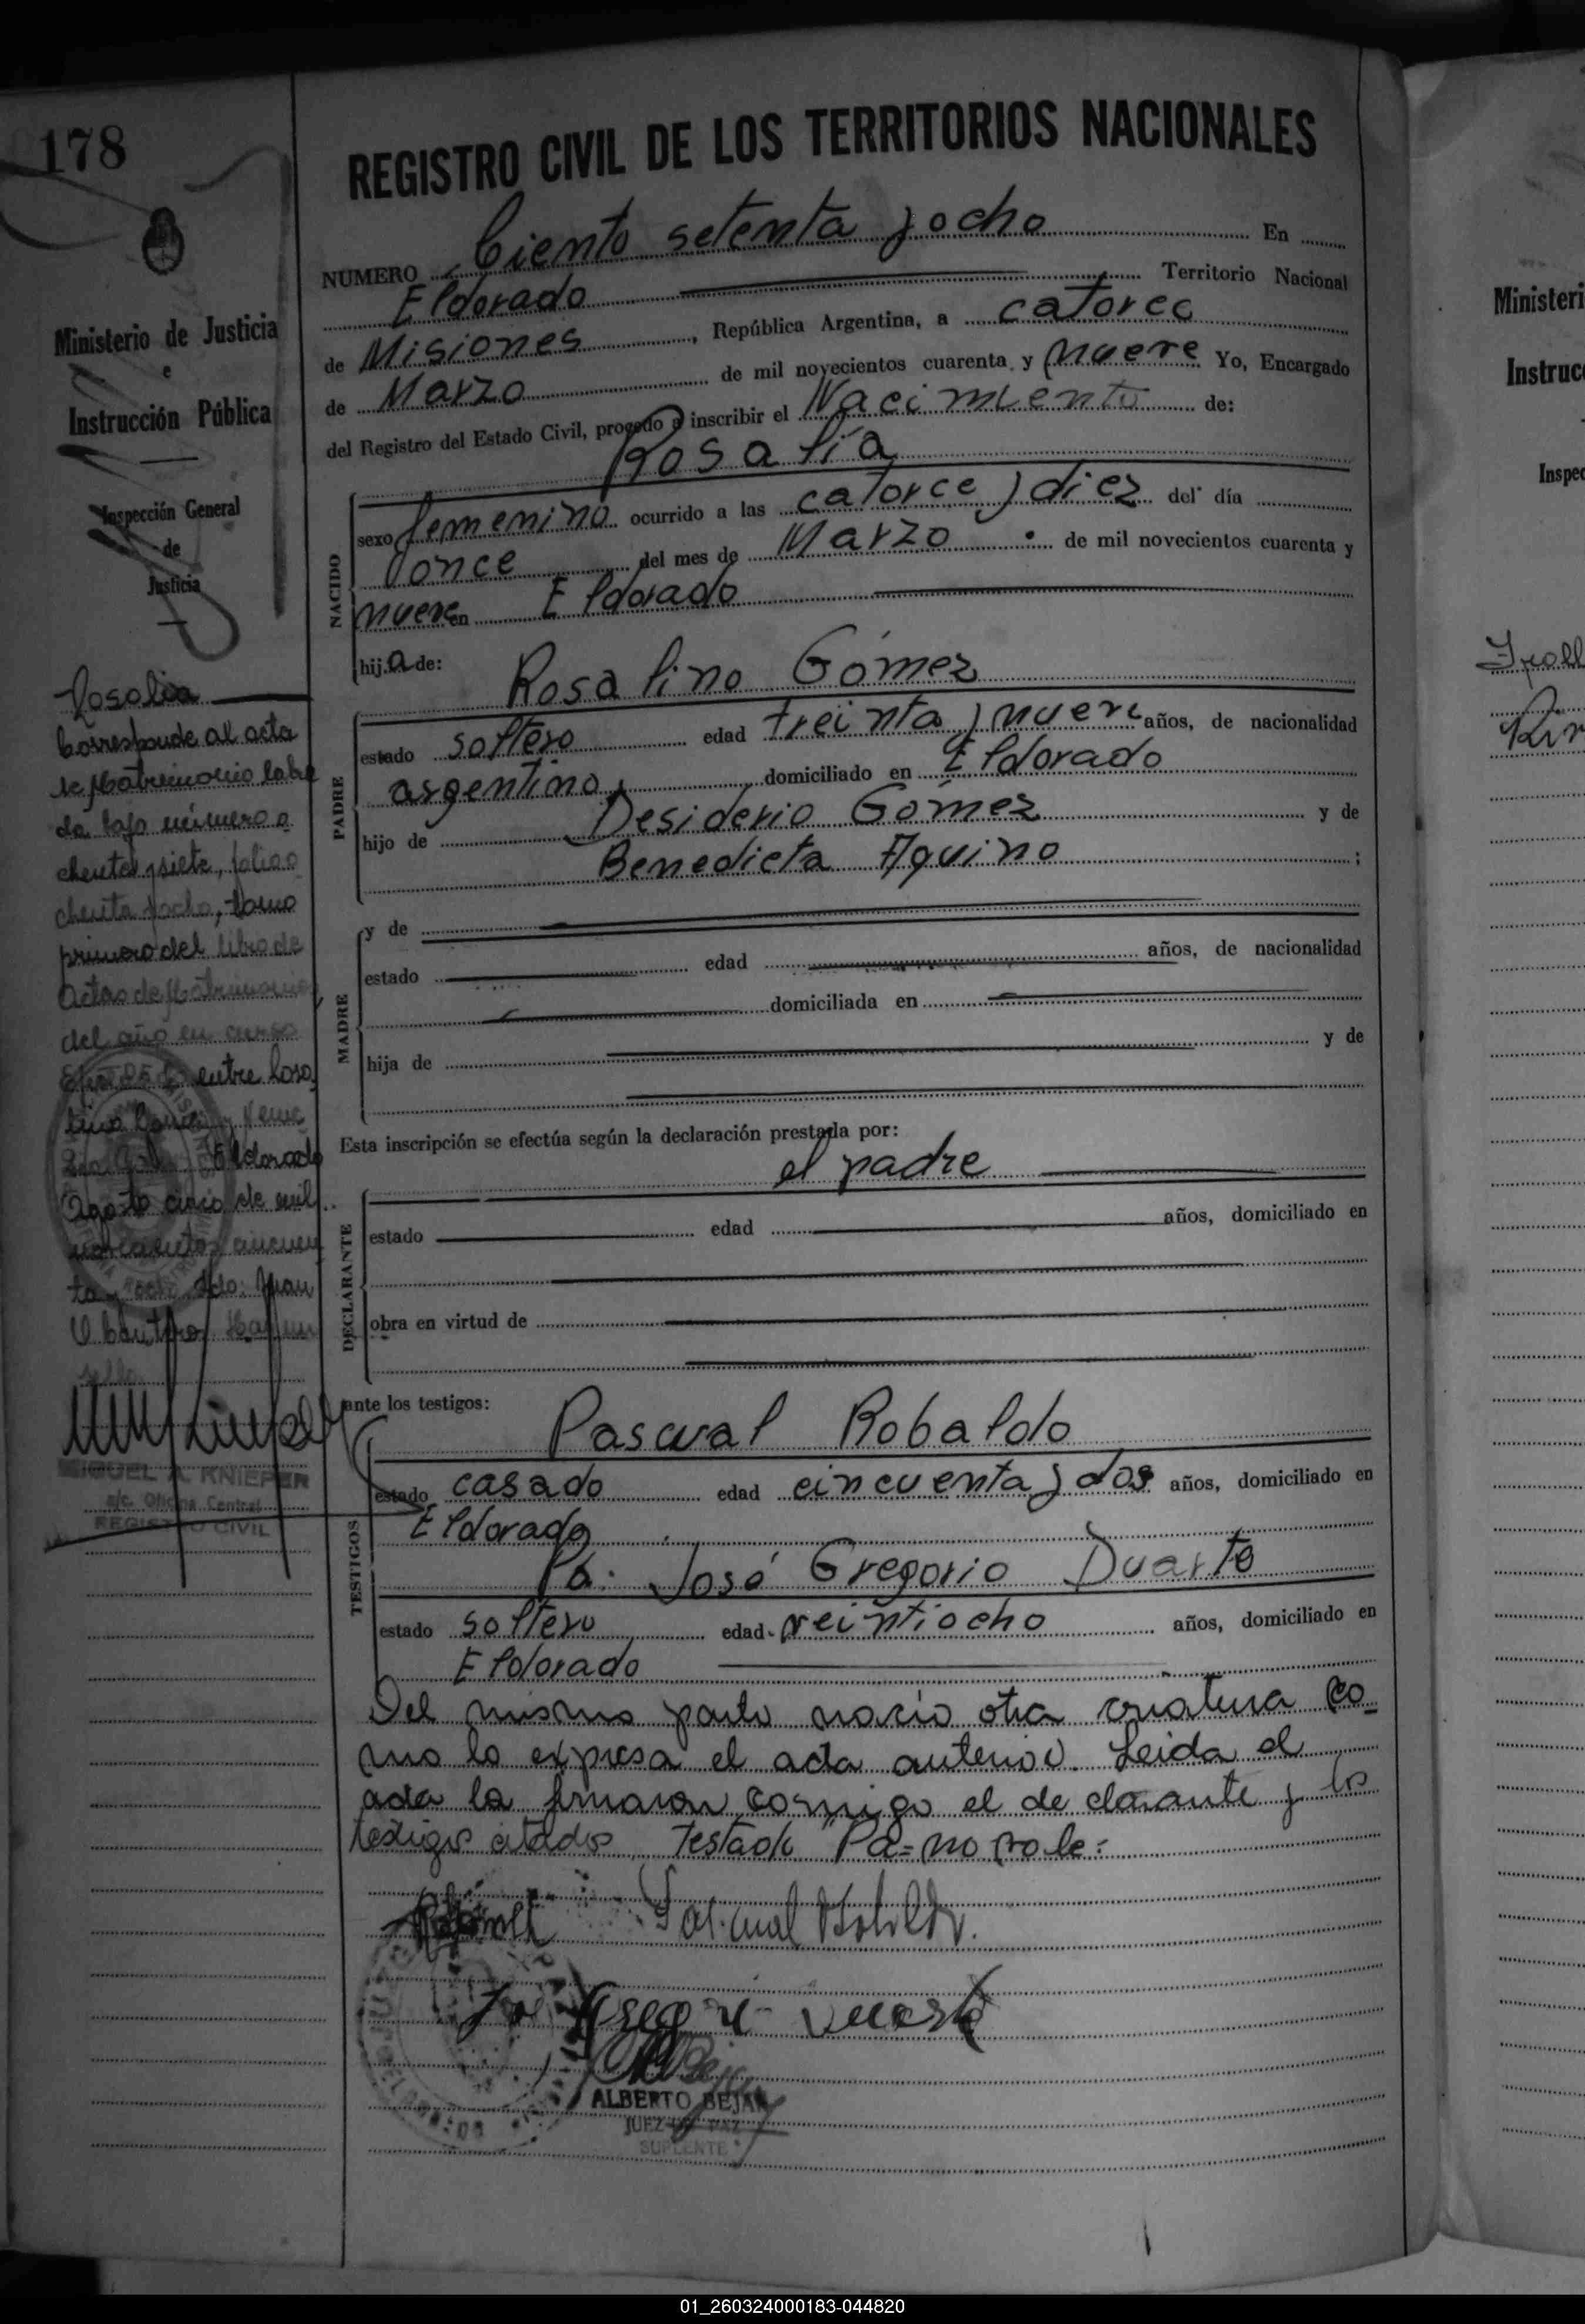 178
Ministerio de Justicia
e
Instrucción Pública
Inspección General
de
Justicia
Rosalia
Corresponde al acta
de Matrimonio labra
da bajo número o
chenta y siete, folio o
chenta y ocho, tomo
primero del libro de
Actas de Matrimonios
del año en curso
entre Rosa
lino
Eldorado
Agosto cinco de mil
novecientos cincuen
ta y
MIGUEL A. KNIEPER
a/c. Oficina Central
REGISTRO CIVIL
REGISTRO CIVIL DE LOS TERRITORIOS NACIONALES
NUMERO Ciento setenta y ocho En
Eldorado Territorio Nacional
de Misiones, República Argentina, a catorce
de Marzo de mil novecientos cuarenta y nueve Yo, Encargado
del Registro del Estado Civil, procedo a inscribir el Nacimiento de:
Rosalía
NACIDO
sexo femenino ocurrido a las catorce y diez del día
once del mes de Marzo de mil novecientos cuarenta y
nueve en Eldorado
hija de:
Rosalino Gómez
PADRE
estado soltero edad treinta y nueve años, de nacionalidad
argentino, domiciliado en Eldorado
hijo de Desiderio Gómez y de
Benedicta Aquino ;
MADRE
y de
estado edad años, de nacionalidad
domiciliada en
hija de y de
Esta inscripción se efectúa según la declaración prestada por:
el padre
DECLARANTE
estado edad años, domiciliado en
obra en virtud de
ante los testigos:
Pascual Robaldo
TESTIGOS
estado casado edad cincuenta y dos años, domiciliado en
Eldorado
Pa. José Gregorio Duarte
estado soltero edad veintiocho años, domiciliado en
Eldorado
Del mismo parto nació otra criatura co=
mo lo expresa el acta anterior. Leida el
acta la firmaron conmigo el declarante y los
testigos citados Testado "Pa=no vale:
Pascual Robaldo.
José Gregorio Duarte
ALBERTO BEJAR
JUEZ DE PAZ
SUPLENTE
Ministeri
Instruc
Inspec
01_260324000183-044820